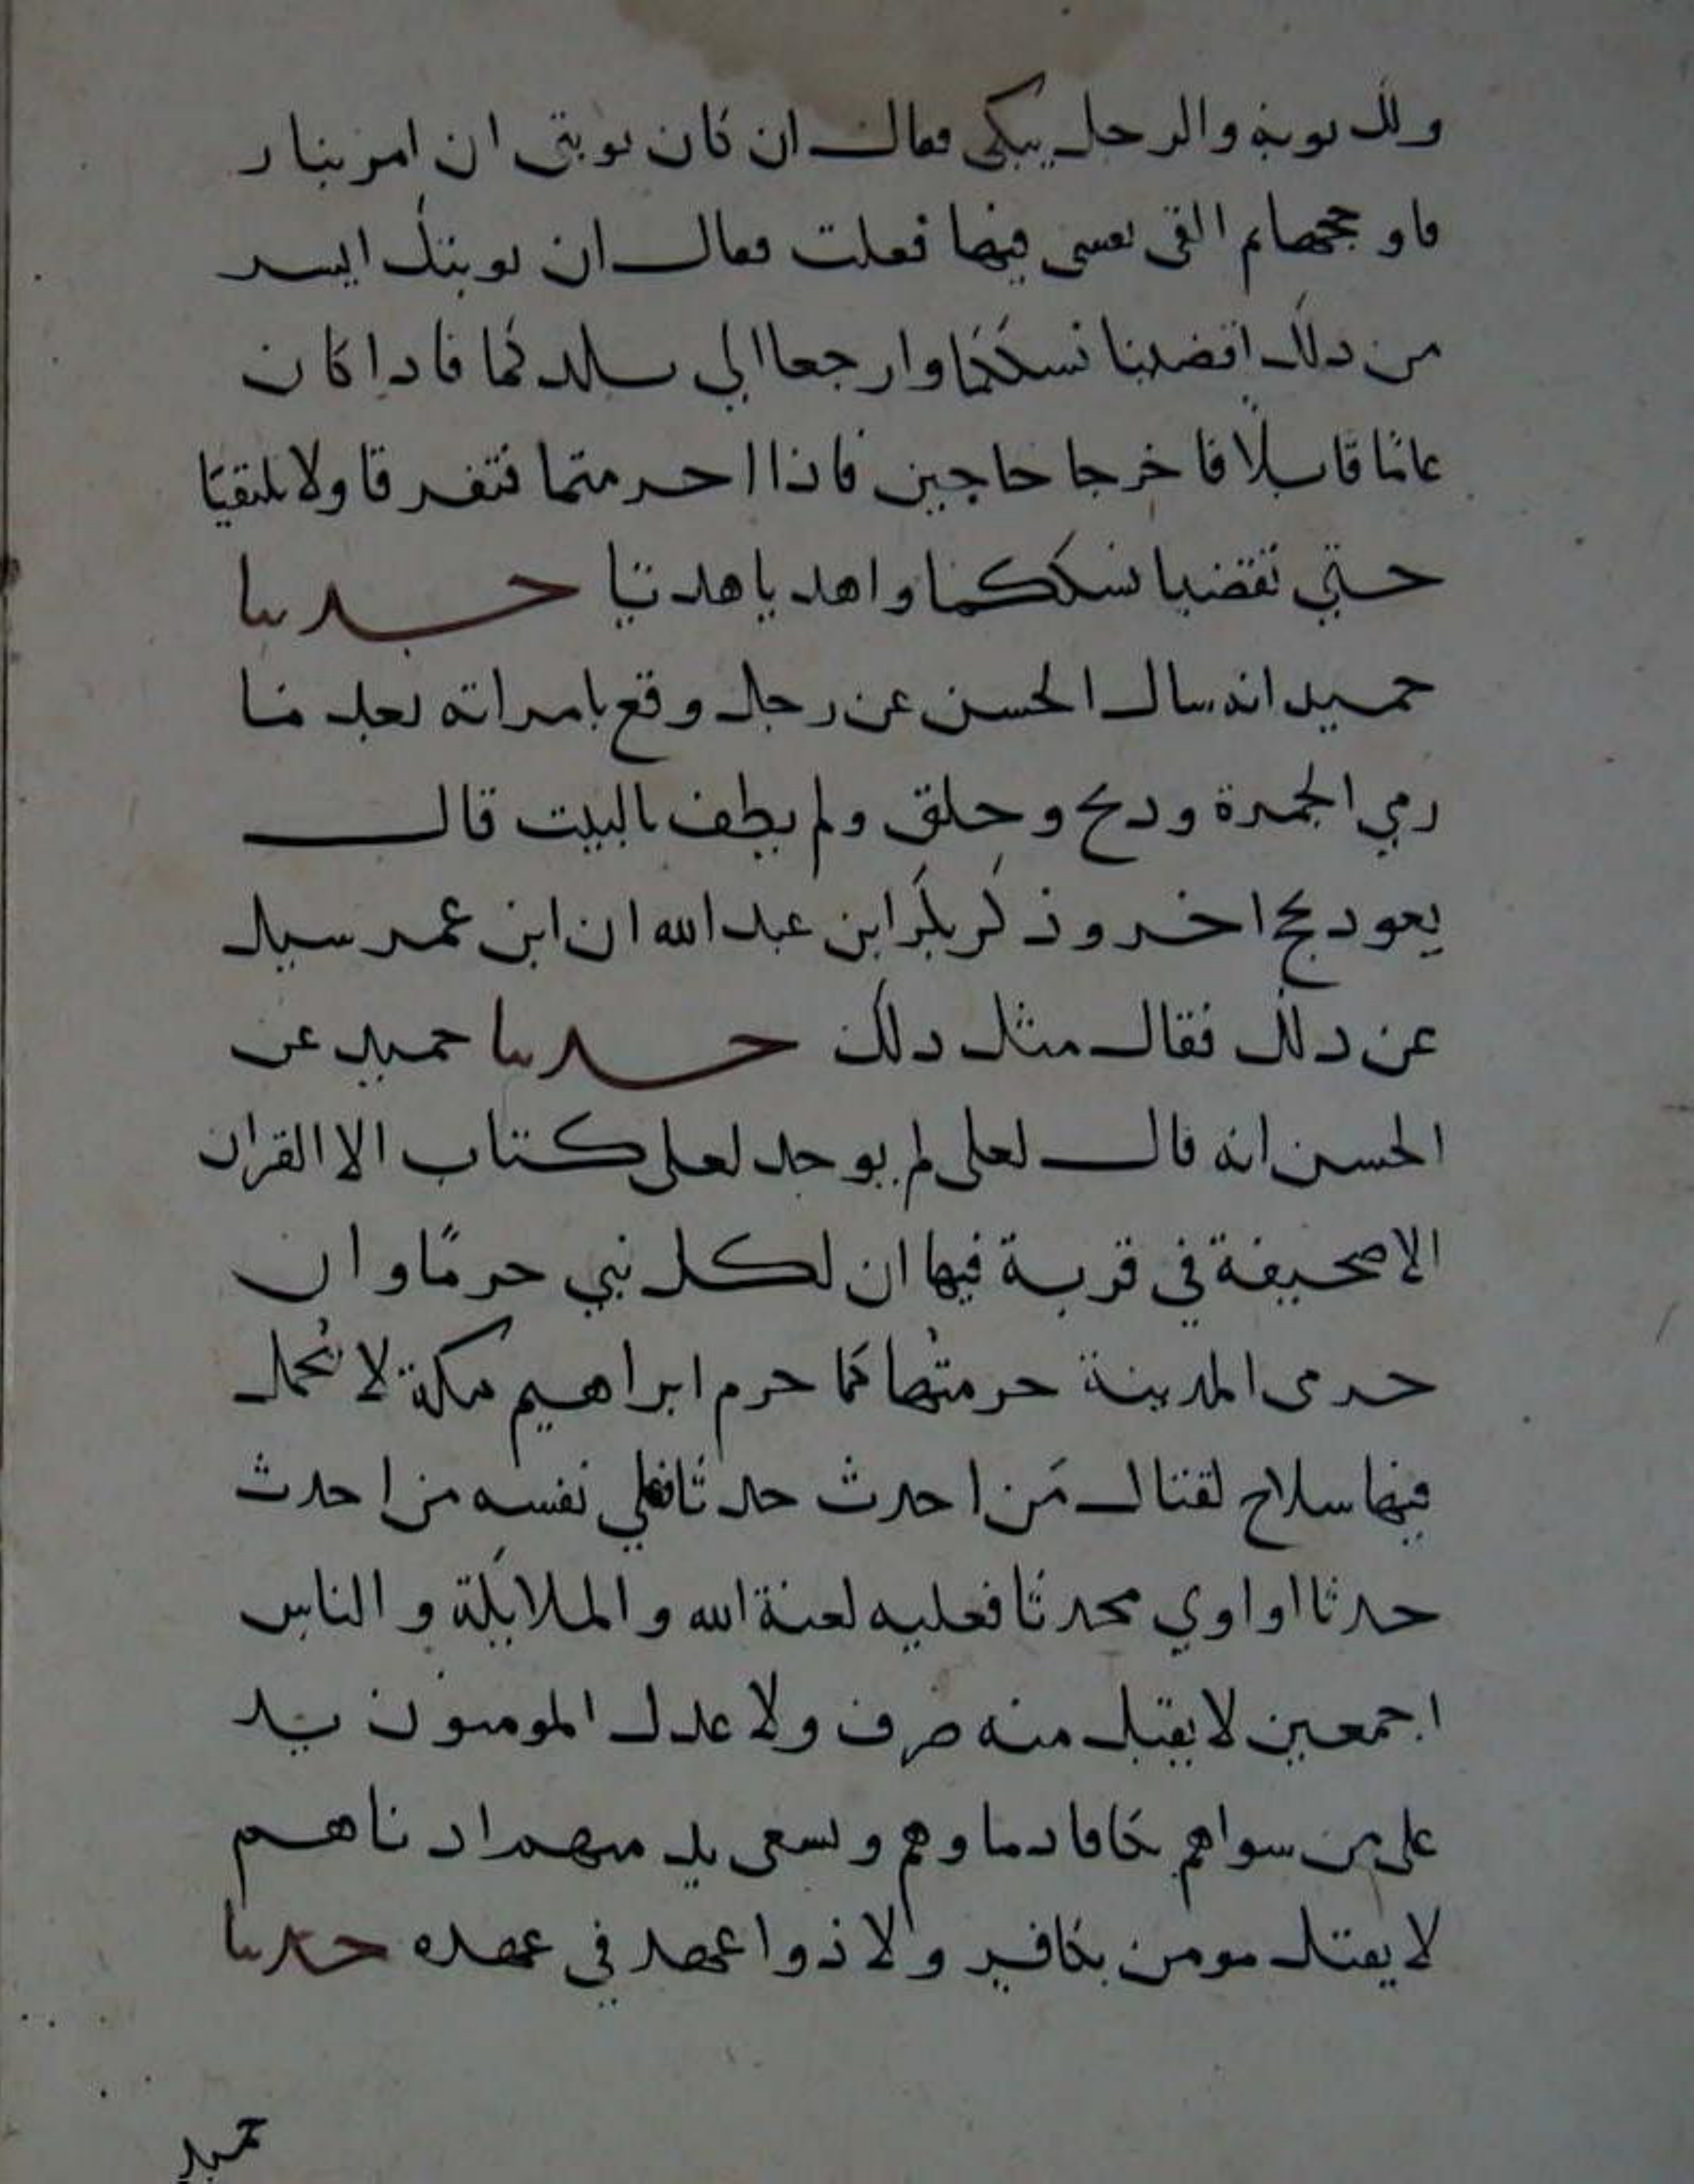 ولك توبة والرجل يبكي فقال ان كان توبتي ان امر بنار
فاوججها ثم القى نفسي فيها فعلت فقال ان توبتك ايسر
من ذلك اقضينا نسككما وارجعا الي بلدكما فاذا كان
عامًا قابلا فاخرجا حاجين فاذا احرمتما فتفرقا ولا تلتقيا
حتي تقضيا نسككما واهديا هديا حدثنا
حميد انه سال الحسن عن رجل وقع بامراته بعد ما
رمي الجمرة وذبح وحلق ولم يطف بالبيت قال
يعود بحج اخر وذكر بكر ابن عبد الله ان ابن عمر سيل
عن ذلك فقال مثل ذلك حدثنا حميد عن
الحسن انه قال لعلى لم يوجد لعلى كتاب الا القران
الا صحيفة في قربة فيها ان لكل نبي حرمًا وان
حرمى المدينة حرمتها كما حرم ابراهيم مكة لا تُحمل
فيها سلاح لقتال مَن احدث حدثا فعلي نفسه من احدث
حدثا او اوي محدثا فعليه لعنة الله والملايكة والناس
اجمعين لا يقبل منه صرف ولا عدل المومنون يد
على من سواهم تكافا دماوهم ويسعى بذمتهم ادناهم
لا يقتل مومن بكافر ولا ذوا عهد في عهده حدثنا
حميد